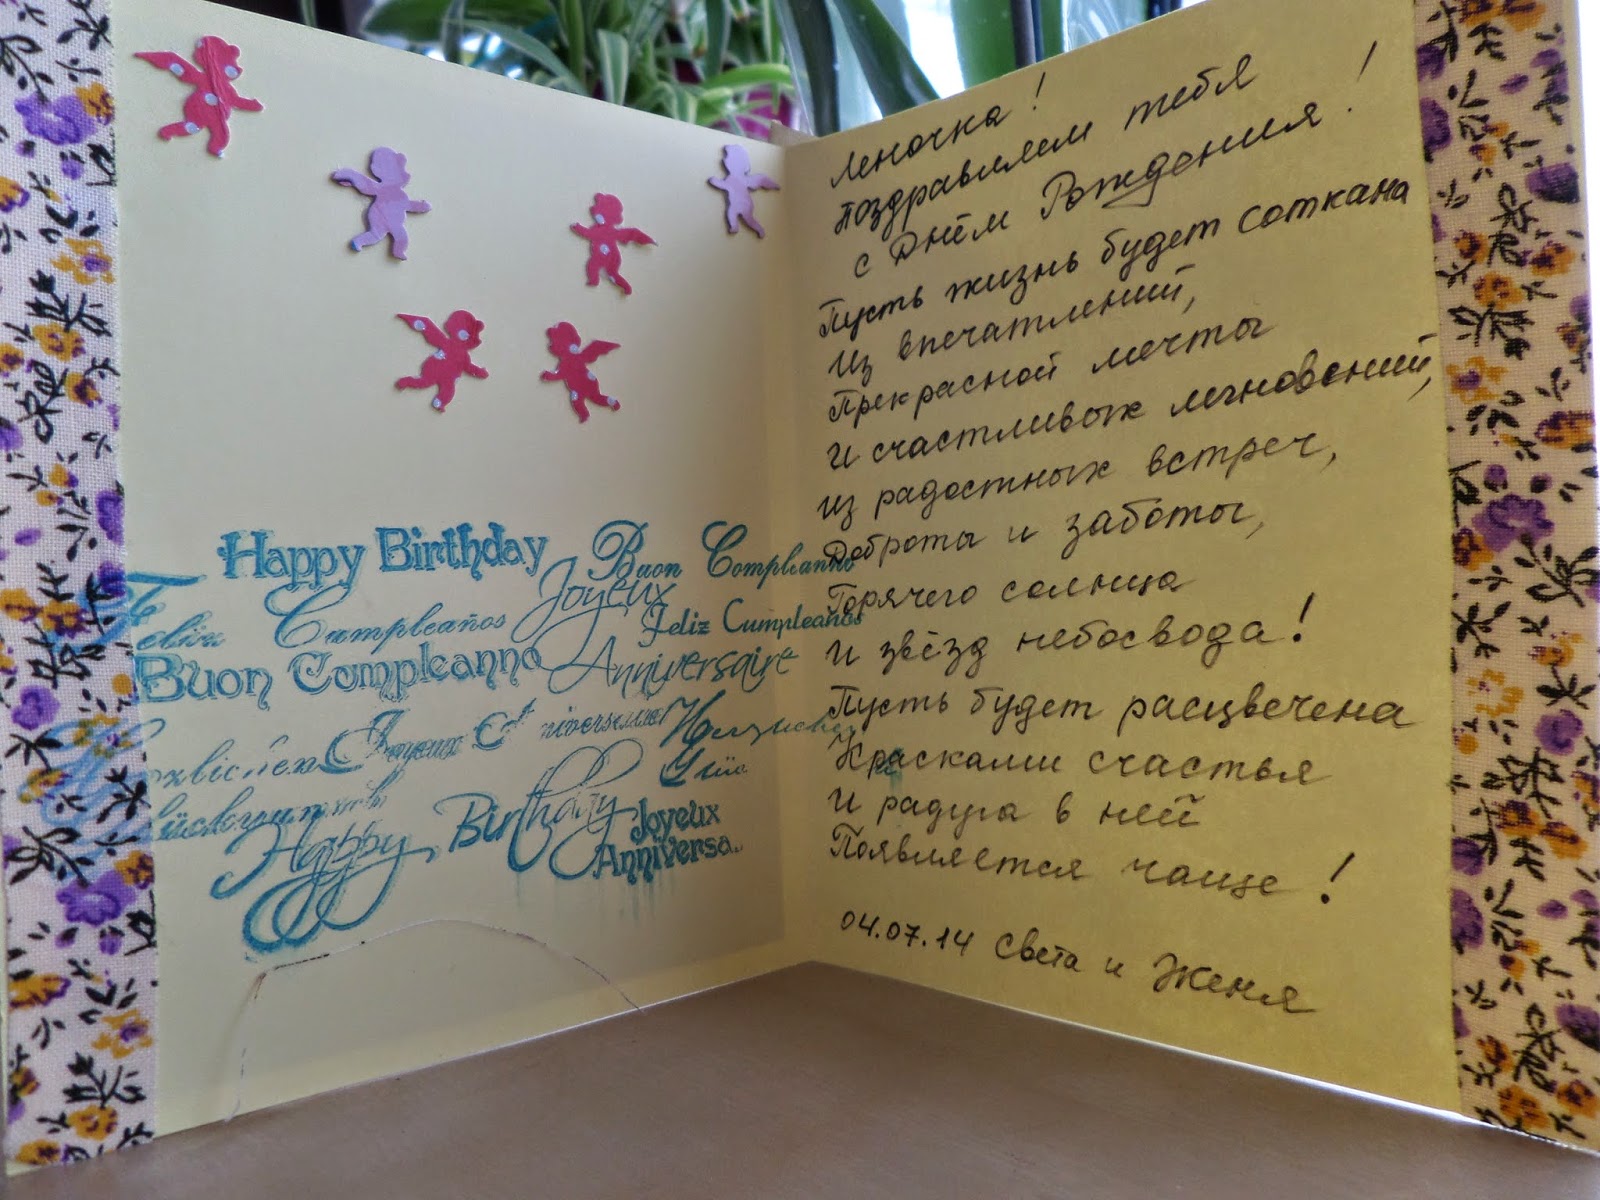 Happy Birthday Buon Compleanno
Feliz Cumpleaños Joyeux Feliz Cumpleaños
Buon Compleanno Anniversaire
Joyeux
Happy Birthday Joyeux
Anniversa
Леночка!
поздравляем тебя
с Днём Рождения!
Пусть жизнь будет соткана
из впечатлений,
Прекрасной мечты
и счастливых мгновений,
из радостных встреч,
Доброты и заботы,
Горячего солнца
и звёзд небосвода!
Пусть будет расцвечена
Красками счастья
и радуга в ней
Появляется чаще!
04.07.14 Света и Женя